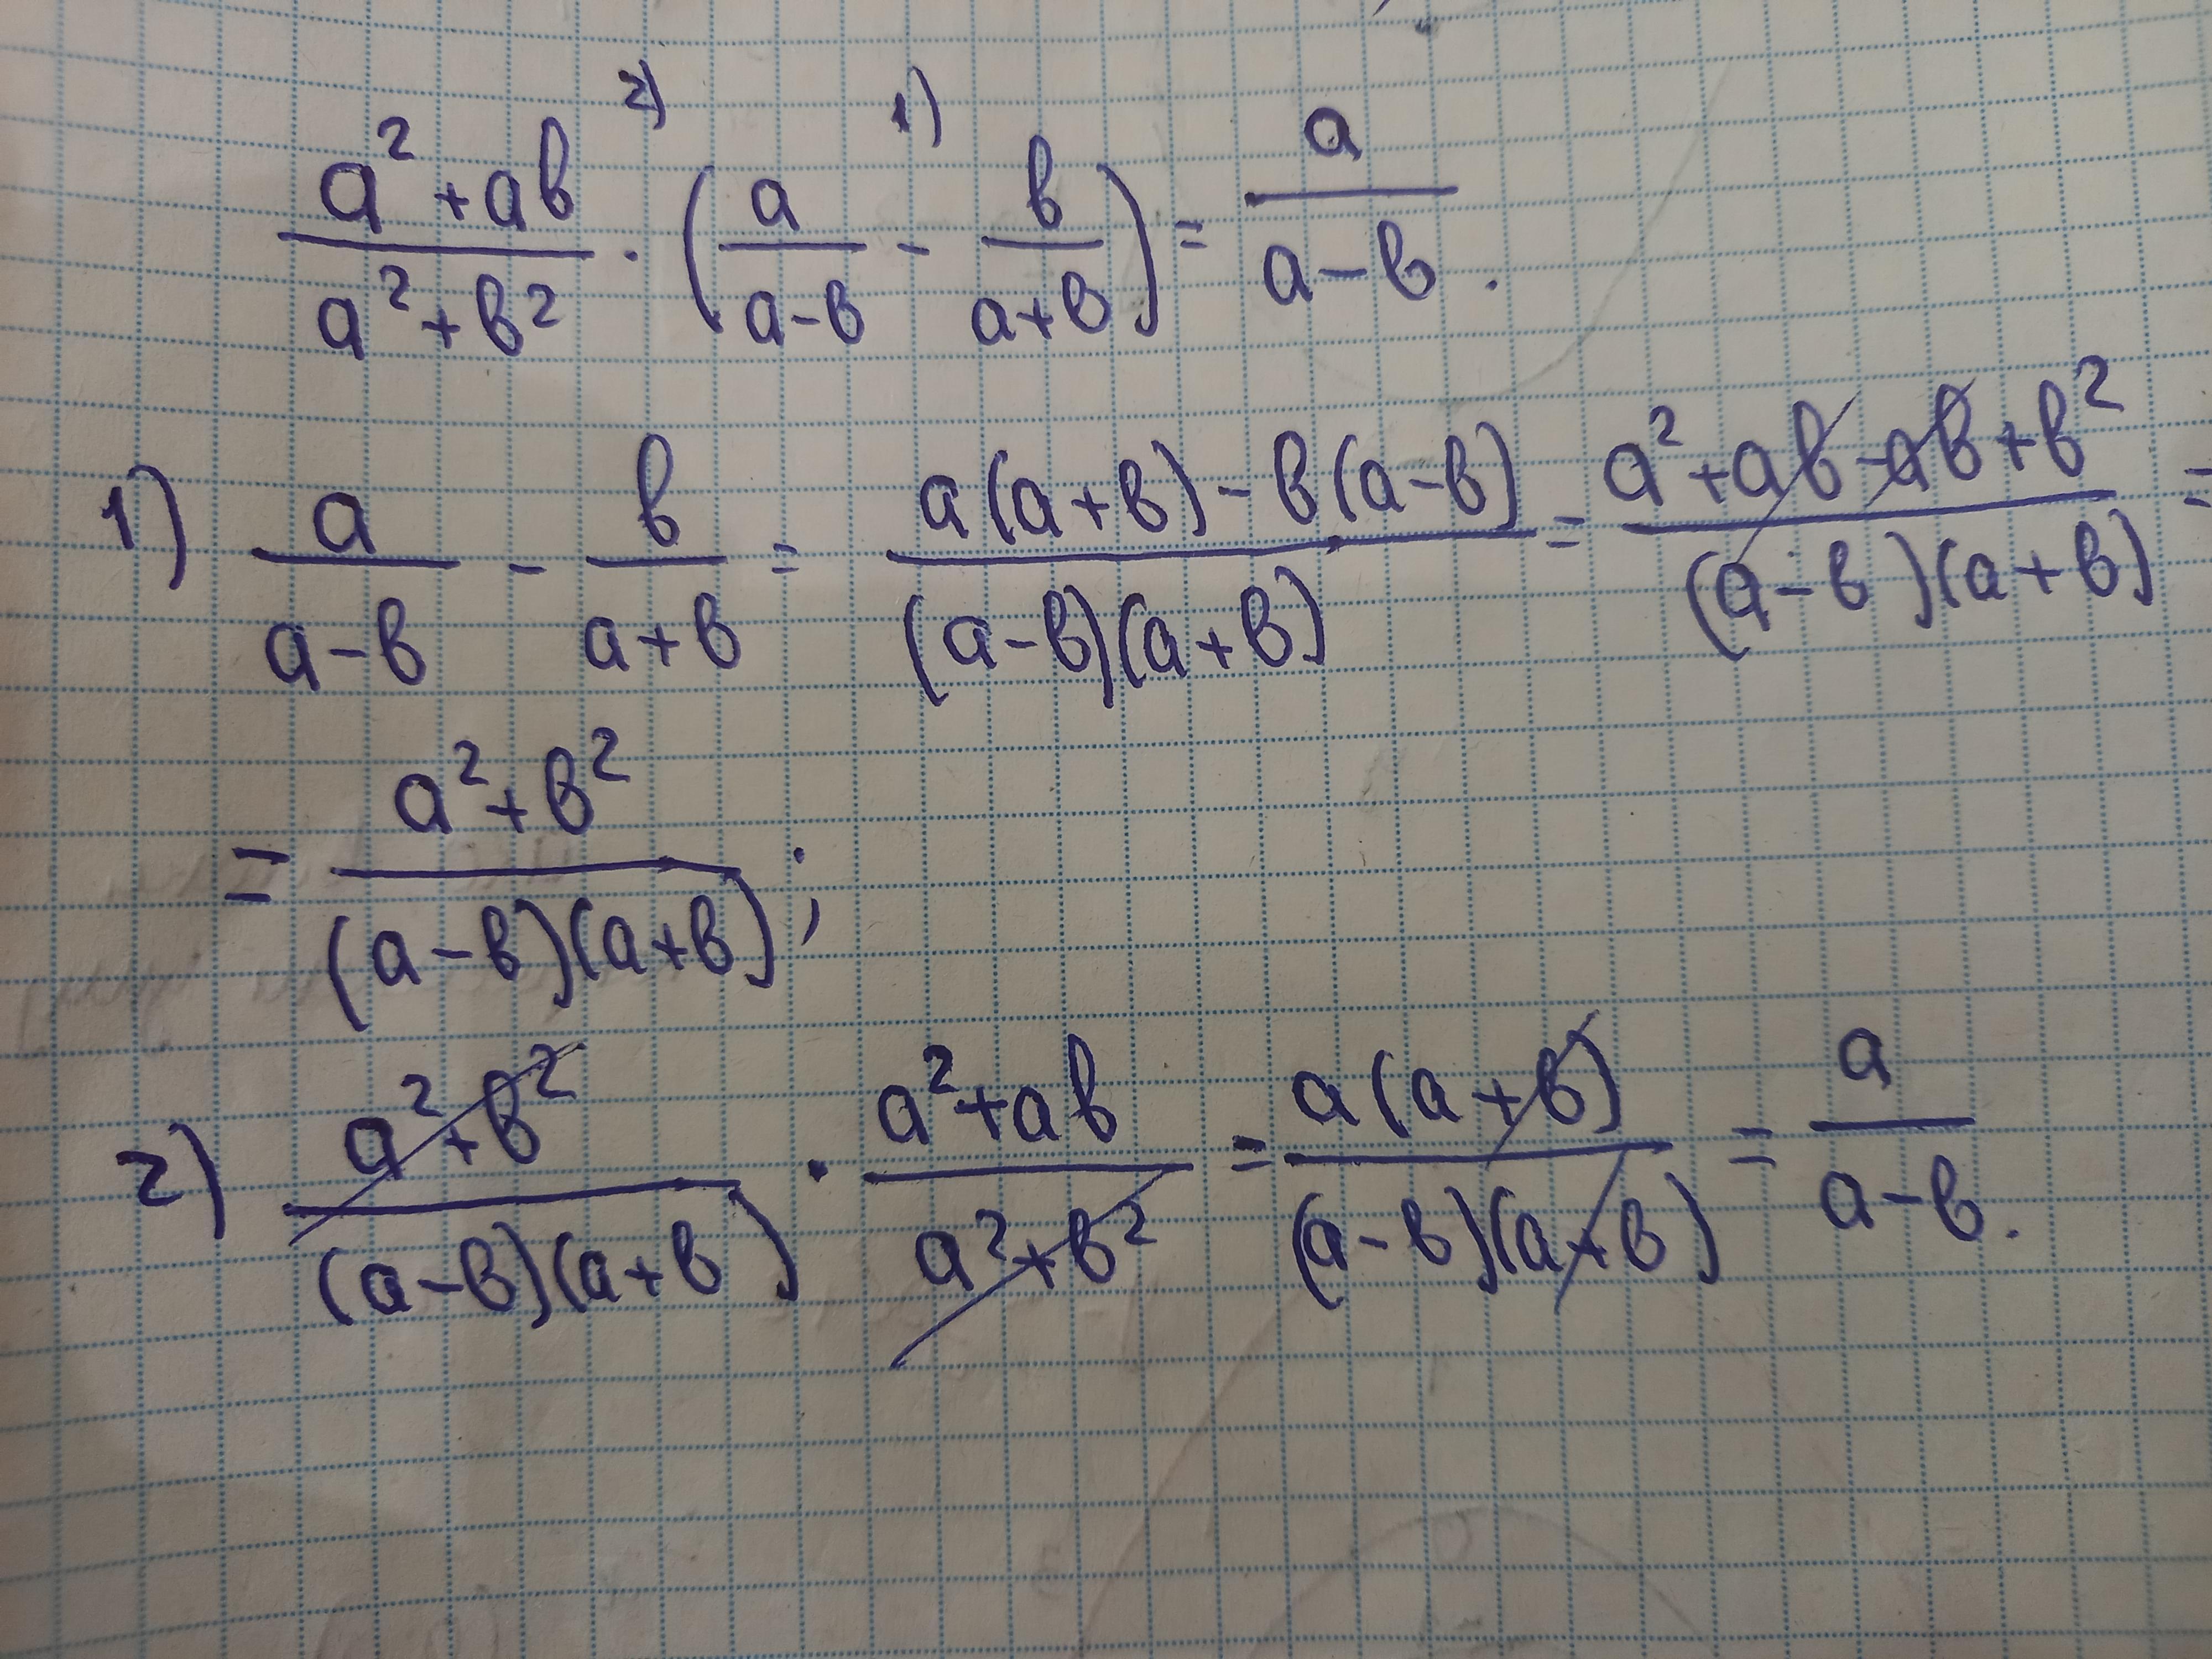 2) 1)
(a² + ab)/(a² + b²) · (a/(a-b) - b/(a+b)) = a/(a-b).
1) a/(a-b) - b/(a+b) = (a(a+b)-b(a-b))/((a-b)(a+b)) = (a²+ab-ab+b²)/((a-b)(a+b)) =
= (a²+b²)/((a-b)(a+b));
2) (a²+b²)/((a-b)(a+b)) · (a²+ab)/(a²+b²) = (a(a+b))/((a-b)(a+b)) = a/(a-b).